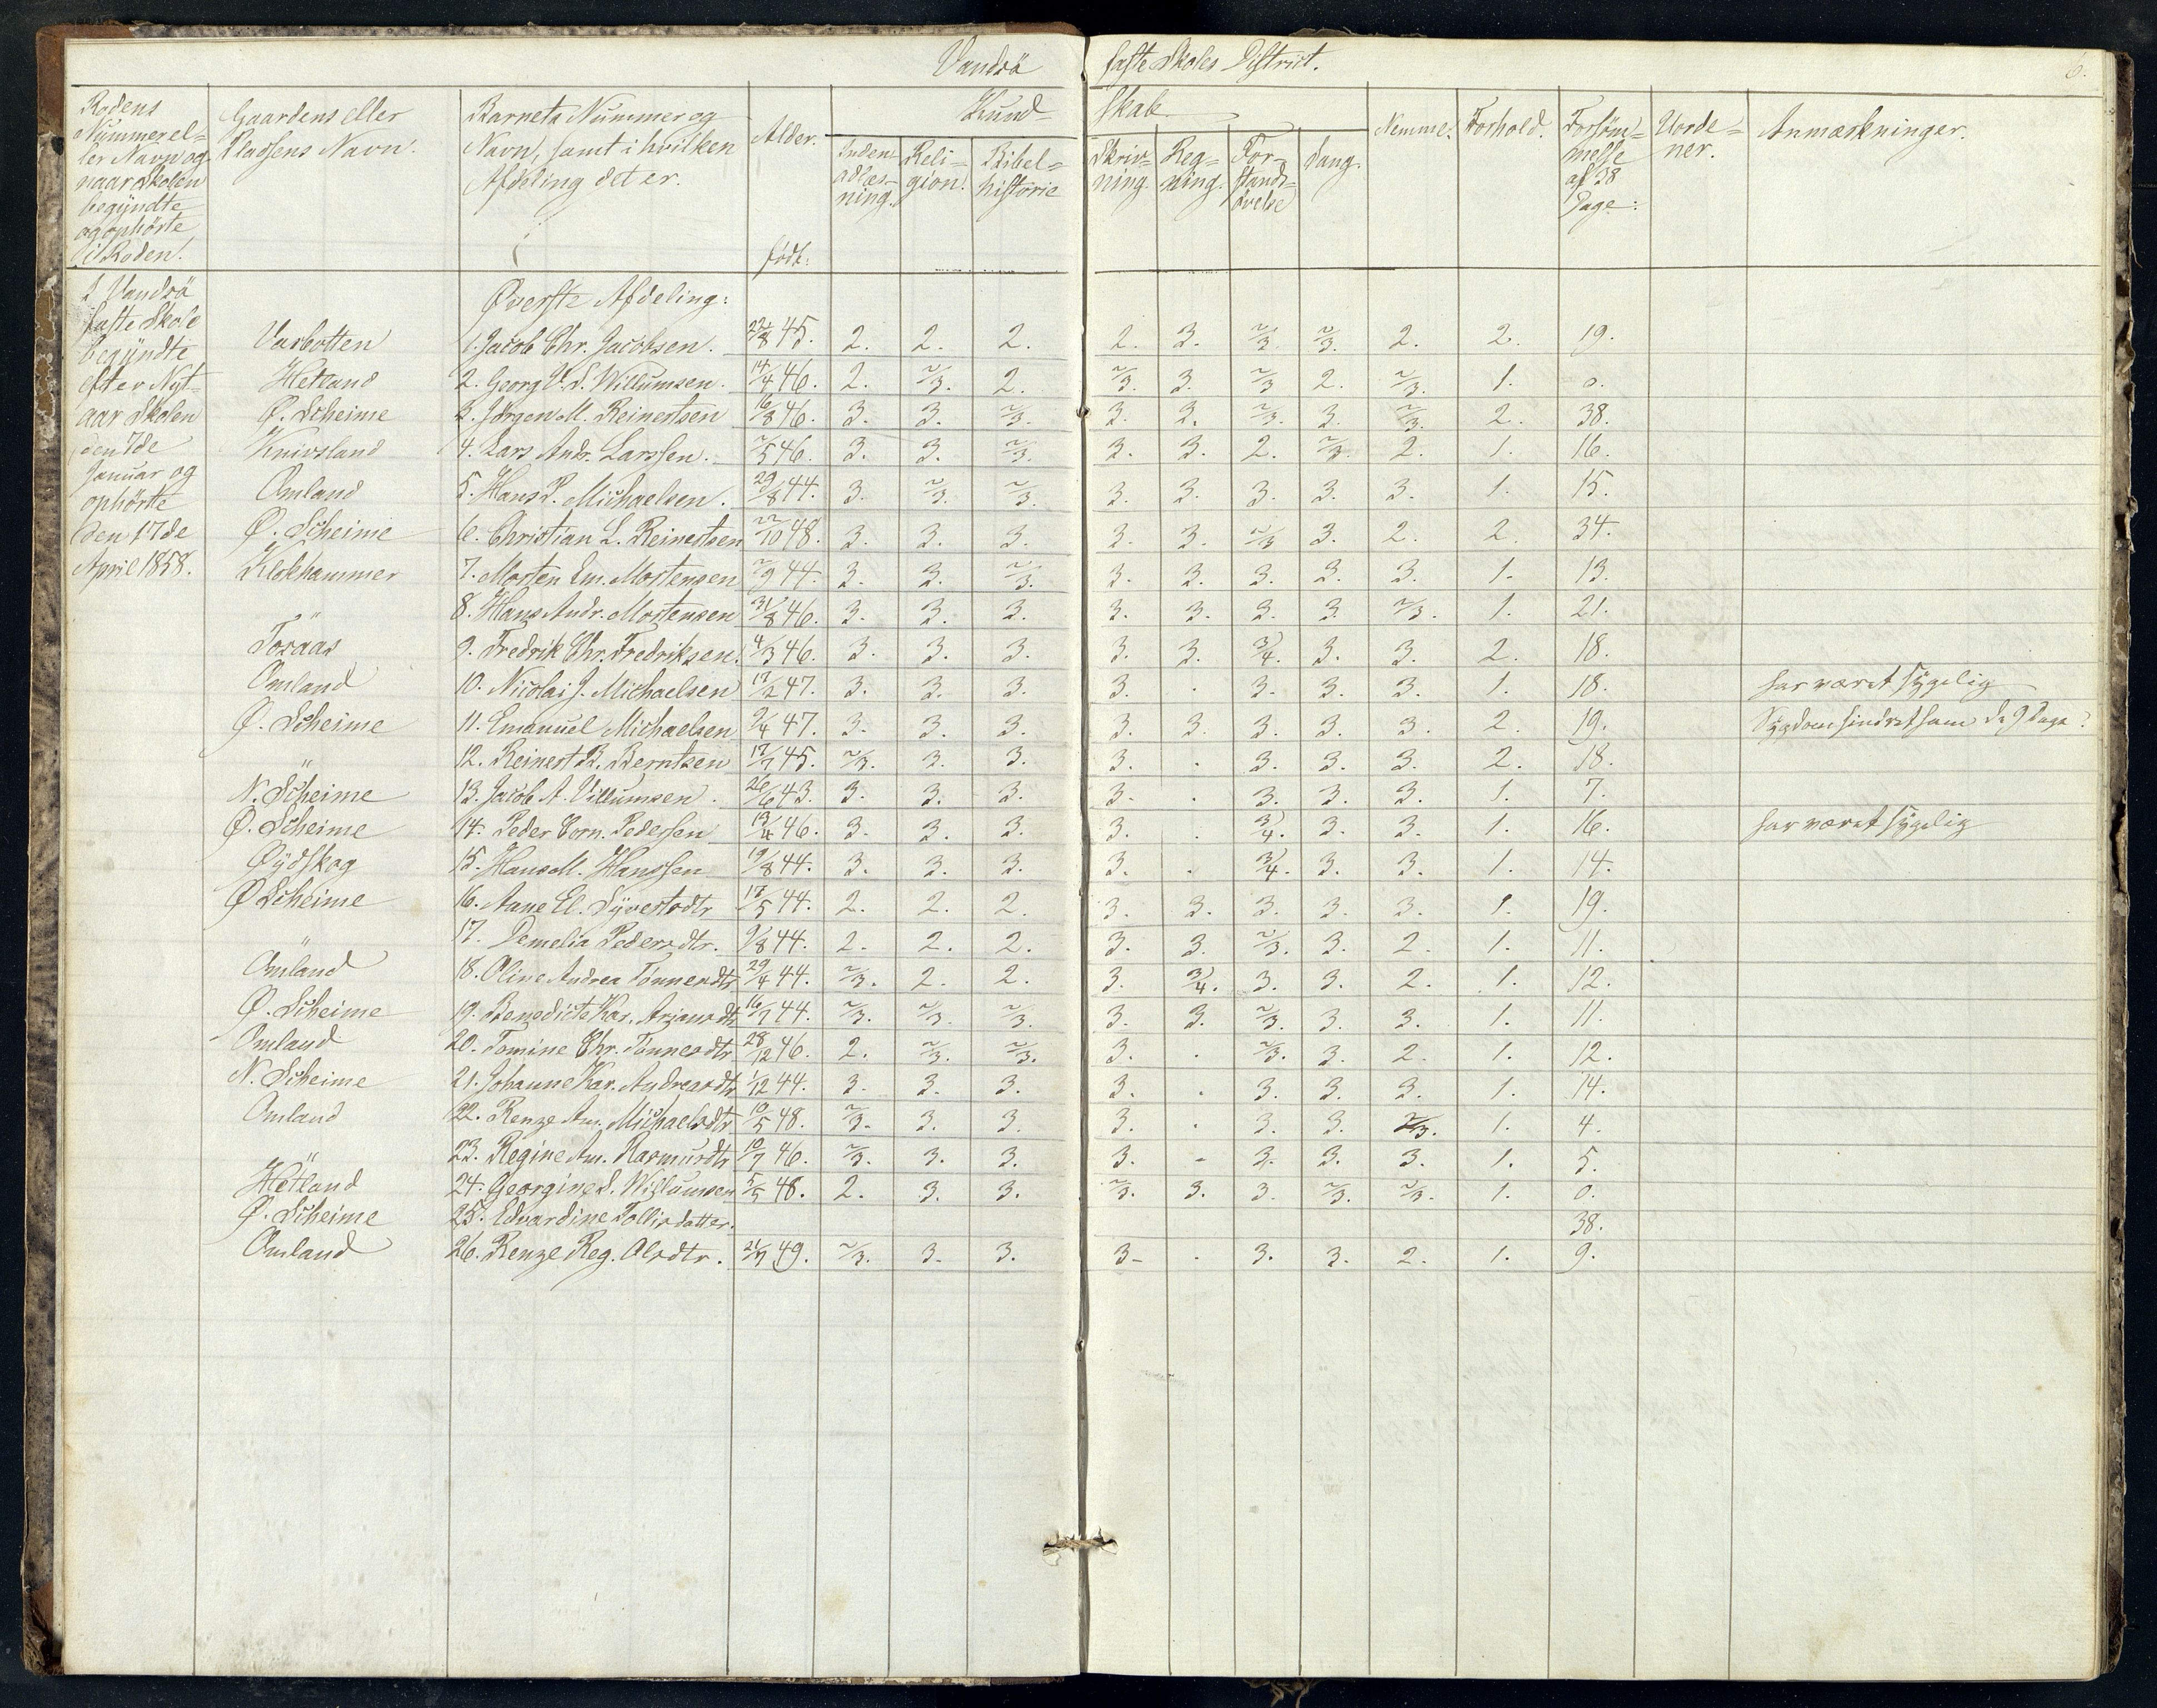 Vandsö faste Skoles District.
6.
Rodens Nummer eller Navn og naar Skolen begyndte og ophörte i Roden.
Gaardens eller Pladsens Navn.
Barnets Nummer og Navn, samt i hvilken Afdeling det er.
Alder. født:
Kundskab
Indenadlæsning.
Religion.
Bibelhistorie
Skrivning.
Regning.
Forstandsövelse
Sang.
Nemme.
Forhold.
Forsömmelse af 38 Dage:
Uordener.
Anmærkninger.
I Vandsö
faste Skole
begyndte
efter Nyt-
aar Skolen
den 7de
Januar og
ophörte
den 17de
April 1858.
Øverste Afdeling:
Varbotten 1. Jacob Chr. Jacobsen. 22/8 45. 2. 2. 2. 2. 3. 2/3. 2/3. 2. 2. 19.
Hetland 2. Georg V. S. Willumsen. 14/4 46. 2. 2/3. 2. 2/3. 3. 2/3 2. 2/3. 1. 0.
Ø. Scheime 3. Jörgen M. Reinertsen 16/8 46. 3. 3. 2/3. 3. 3. 2/3. 3. 2/3. 2. 38.
Knivsland 4. Lars Andr. Larssen. 2/5 46. 3. 3. 2/3. 3. 3. 2. 2/3. 2. 1. 16.
Omland 5. Hans P. Michaelsen. 29/8 44. 3. 2/3. 2/3. 3. 3. 3. 3. 3. 1. 15.
Ø. Scheime 6. Christian L. Reinertsen 22/10 48. 3. 3. 3. 3. 3. 2/3 3. 2. 2. 34.
Klokhammer 7. Morten Em. Mortensen 2/9 44. 3. 3. 2/3. 3. 3. 3. 3. 3. 1. 13.
" 8. Hans Andr. Mortensen 31/8 46. 3. 3. 3. 3. 3. 3. 3. 2/3. 1. 21.
Tosaas 9. Fredrik Chr. Fredriksen. 4/3 46. 3. 3. 3. 3. 3. 3/4. 3. 3. 2. 18.
Omland 10. Nicolai J. Michaelsen 17/2 47. 3. 3. 3. 3. . 3. 3. 3. 1. 18. har været sygelig
Ø. Scheime 11. Emanuel Michaelsen 9/4 47. 3. 3. 3. 3. 3. 3. 3. 3. 2. 19. Sygdom hindret ham de 9 Dage
" 12. Reinert B. Berntsen 17/7 45. 2/3. 3. 3. 3. . 3. 3. 3. 2. 18.
N. Scheime 13. Jacob A. Villumsen. 26/6 43. 3. 3. 3. 3. . 3. 3. 3. 1. 7.
Ø. Scheime 14. Peder Corn. Pedersen 13/4 46. 3. 3. 3. 3. . 3/4. 3. 3. 1. 16. har været sygelig
Øydskog 15. Hans M. Hanssen 19/8 44. 3. 3. 3. 3. . 3/4. 3. 3. 1. 14.
Ø Scheime 16. Aane El. Syvertsdtr 17/5 44. 2. 2. 2. 3. 3. 3. 3. 3. 1. 19.
" 17. Demelia Pedersdtr. 9/8 44. 2. 2. 2. 3. 3. 2/3. 3. 2. 1. 11.
Omland 18. Oline Andrea Tönnesdtr 29/4 44. 2/3. 2. 2. 3. 3/4. 3. 3. 2. 1. 12.
Ø. Scheime 19. Benedicte Kar. Arjansdtr 16/7 44. 2/3. 2/3. 2/3. 3. 3. 2/3. 3. 3. 1. 11.
Omland 20. Tomine Chr. Tönnesdtr 28/12 46. 2. 2/3. 2/3. 3. . 2/3. 3. 2. 1. 12.
N. Scheime 21. Johanne Kar. Andreasdtr 1/12 44. 3. 3. 3. 3. . 3. 3. 3. 1. 14.
Omland 22. Renze Am. Michaelsdtr 10/5 48. 2/3. 3. 3. 3. . 3. 3. 2/3. 1. 4.
" 23. Regine Am. Rasmusdtr 10/7 46. 2/3. 3. 3. 3. - 3. 3. 3. 1. 5.
Hetland 24. Georgine S. Willumsen 5/5 48. 2. 3. 3. 2/3. 3. 3. 2/3. 2/3. 1. 0.
Ø. Scheime 25. Edvardine Tollisdatter. 38.
Omland 26. Renze Reg. Olsdtr. 21/7 49. 2/3. 3. 3. 3- . 3. 3. 2. 1. 9.